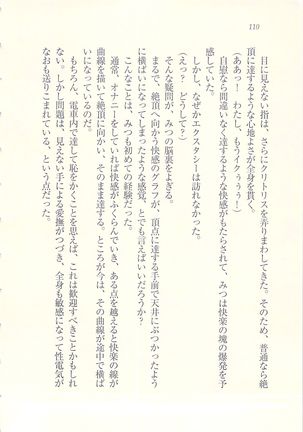 110
目に見えない指は、さらにクリトリスを弄りまわしてきた。そのため、普通なら絶
頂に達するような心地よさが全身を貫く。
(ああっ！　わたし、もうイクぅぅっ！)
自慰なら間違いなく達するような快感がもたらされて、みつは快楽の塊の爆発を予
感していた。
しかし、なぜかエクスタシーは訪れなかった。
(えっ？　どうして？)
そんな疑問が、みつの脳裏をよぎる。
まるで、絶頂へ向かう快感のグラフが、頂点に達する手前で天井にぶつかったよう
に横ばいになってしまったような感覚、とでも言えばいいだろうか？
こんなことは、みつも初めての経験だった。
通常、オナニーをしていれば快感がふくらんでいき、ある点を越えると快楽の線が
曲線を描いて絶頂に向かい、そのまま達する。ところが今は、その曲線が途中で横ば
いになっているのだ。
もちろん、電車内で達して恥をかくことを思えば、これは歓迎すべきことかもしれ
ない。しかし問題は、見えない手による愛撫がつづき、全身も敏感になって性電気が
なおも送りこまれている、という点だった。